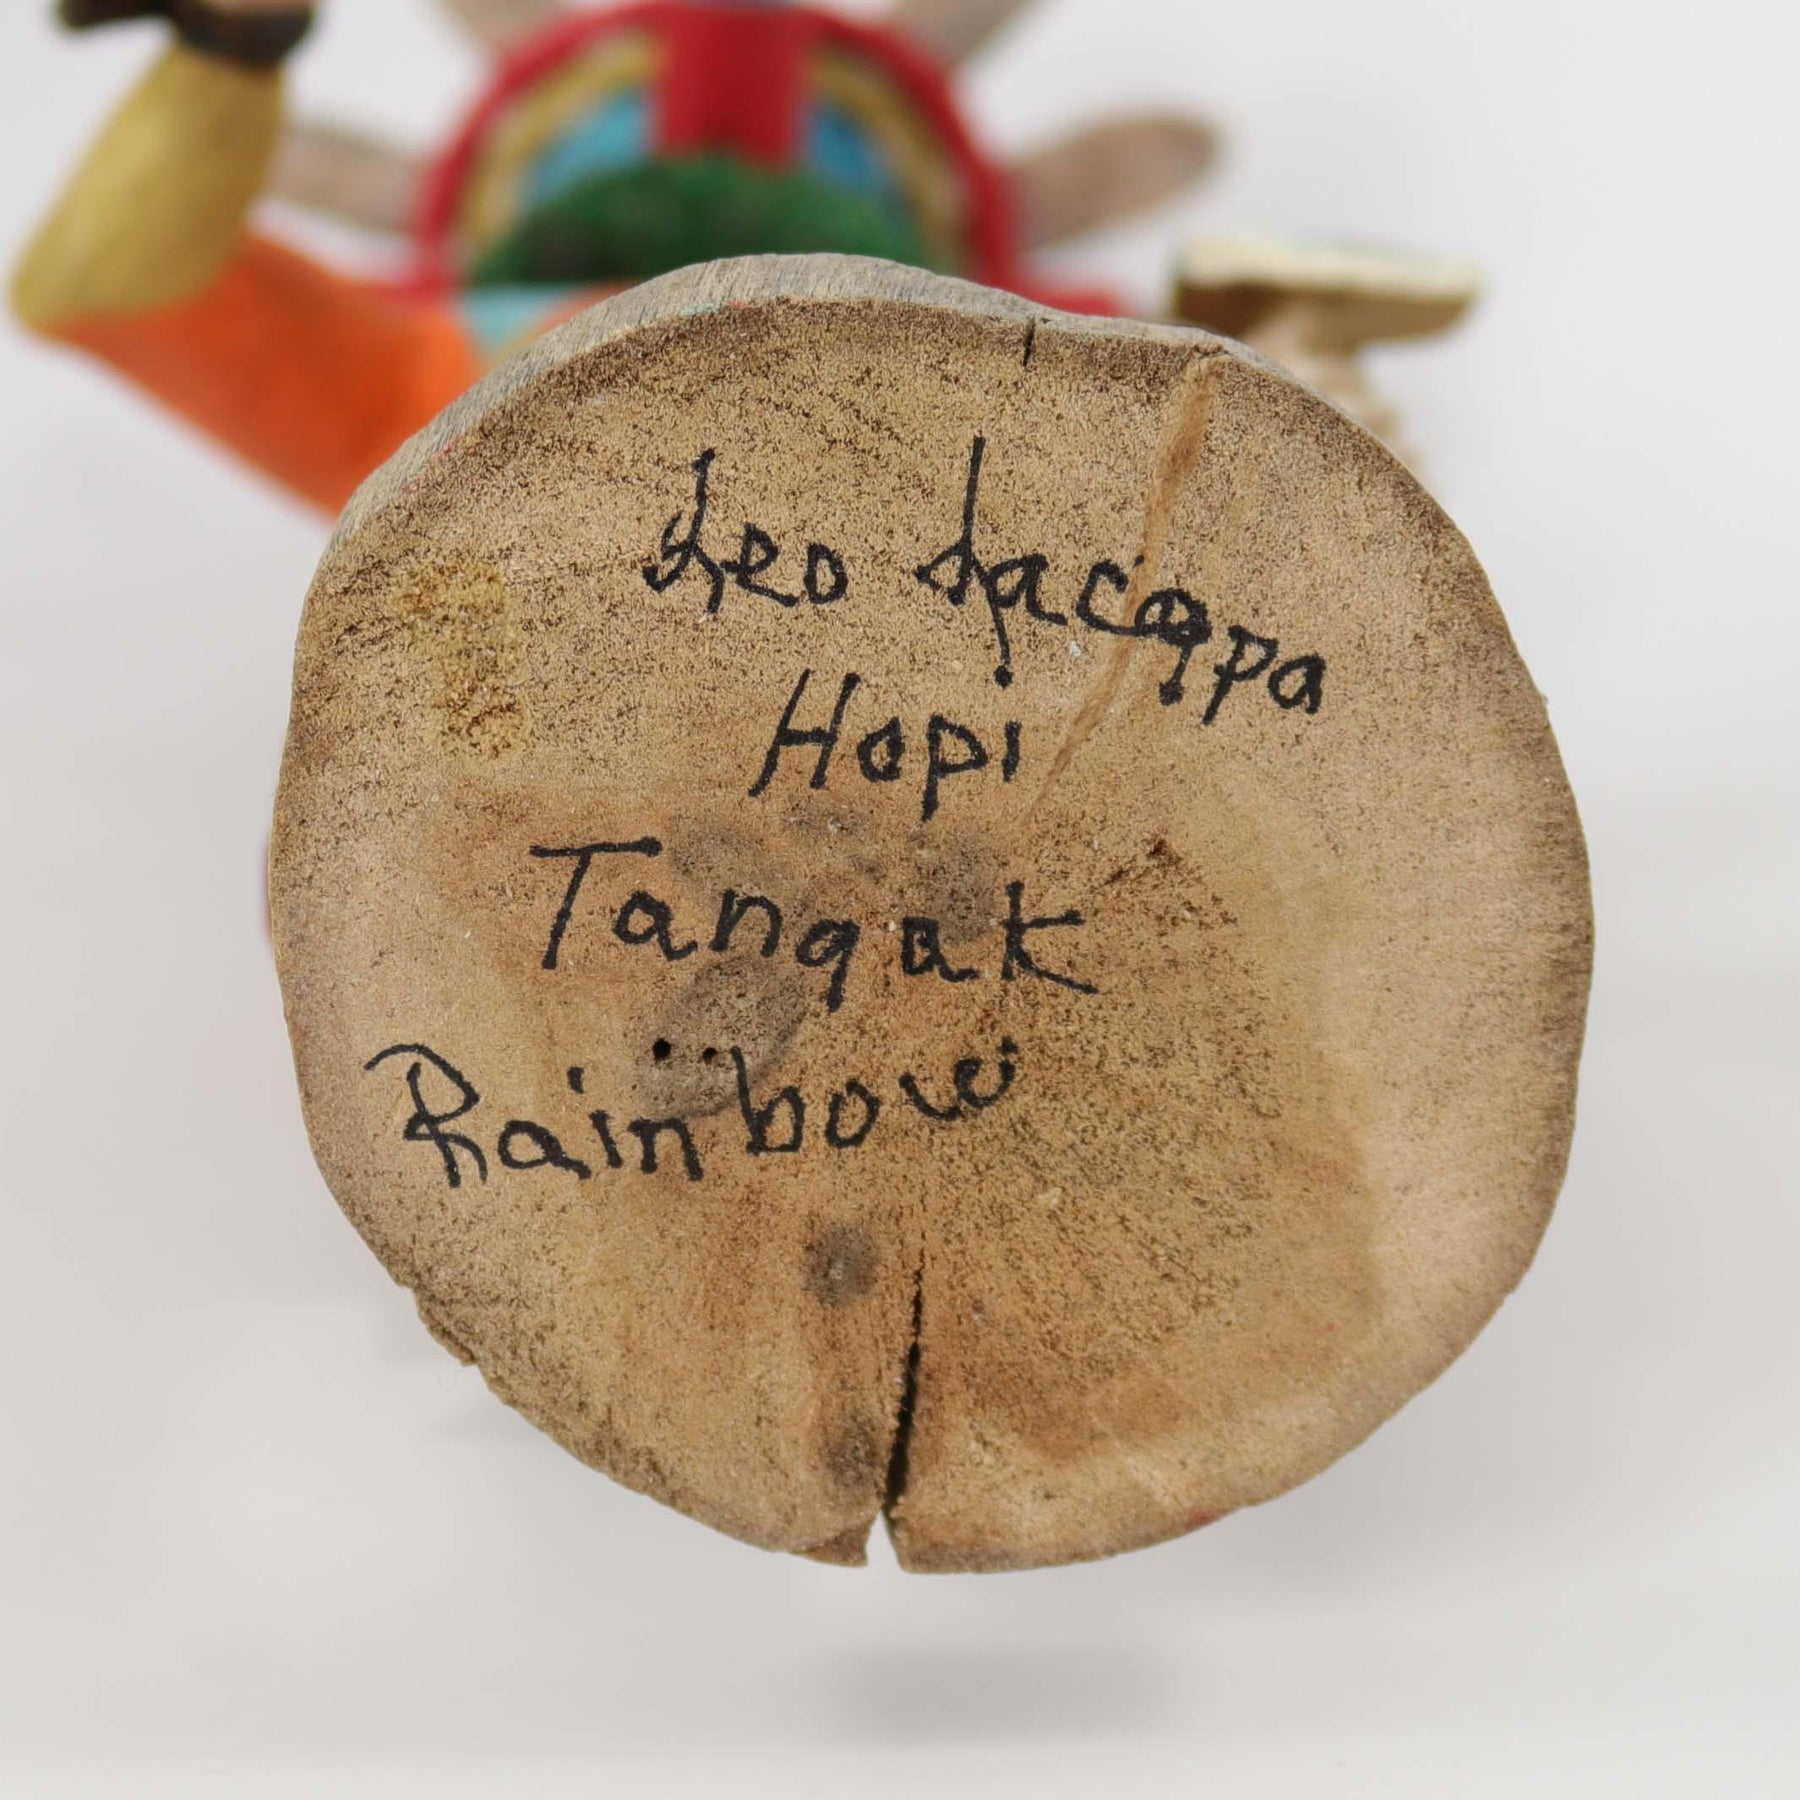 Leo Lacapa
Hopi
Tangak
Rainbow